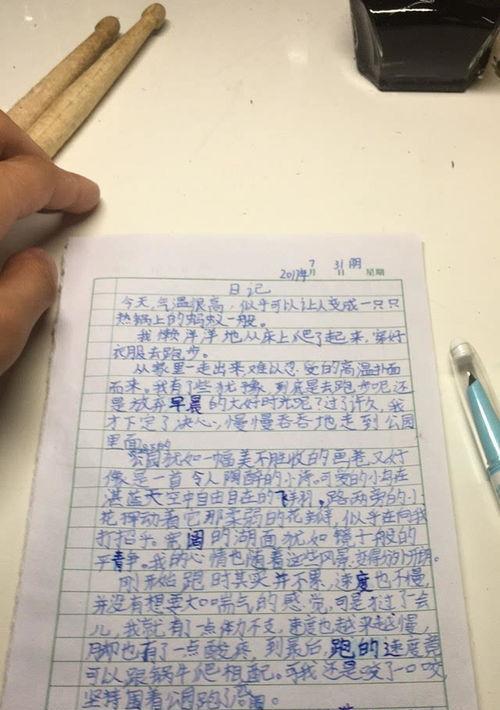 2017年7月31日 星期 阴
日记
今天,气温很高,似乎可以让人变成一只只
热锅上的蚂蚁一般。
我懒洋洋地从床上爬了起来,穿好
衣服去跑步。
从家里一走出来难以忍受的高温扑面
而来。我有了些犹豫,到底是去跑步呢还
是放弃早晨的大好时光呢?过了许久,我
才下定了决心,慢慢吞吞地走到公园
里面
公园就如一幅美不胜收的画卷,又好
像是一首令人陶醉的小诗。可爱的小鸟在
湛蓝天空中自由自在的飞翔。路两旁的小
花挥动着它那柔弱的花瓣,似乎在向我
打招呼。宽阔的湖面犹如镜子般的
平静。我的心情也随着这些风景,变得分外开朗。
刚开始跑时其实并不累,速度也不慢,
并没有想要大口喘气的感觉,可是才过了一会
儿,我就有了一点体力不支,速度也越来越慢,
脚也有了一点酸疼,到最后,跑的速度竟
可以跟蜗牛爬相配。可我还是咬了一口咬
坚持围着公园跑了